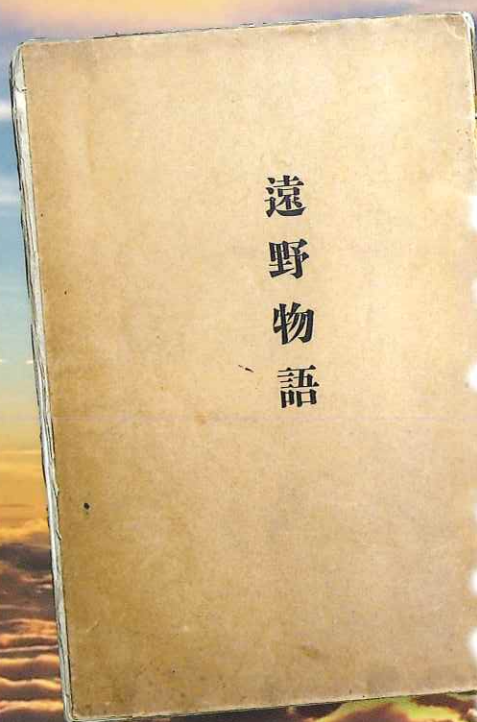 遠野物語